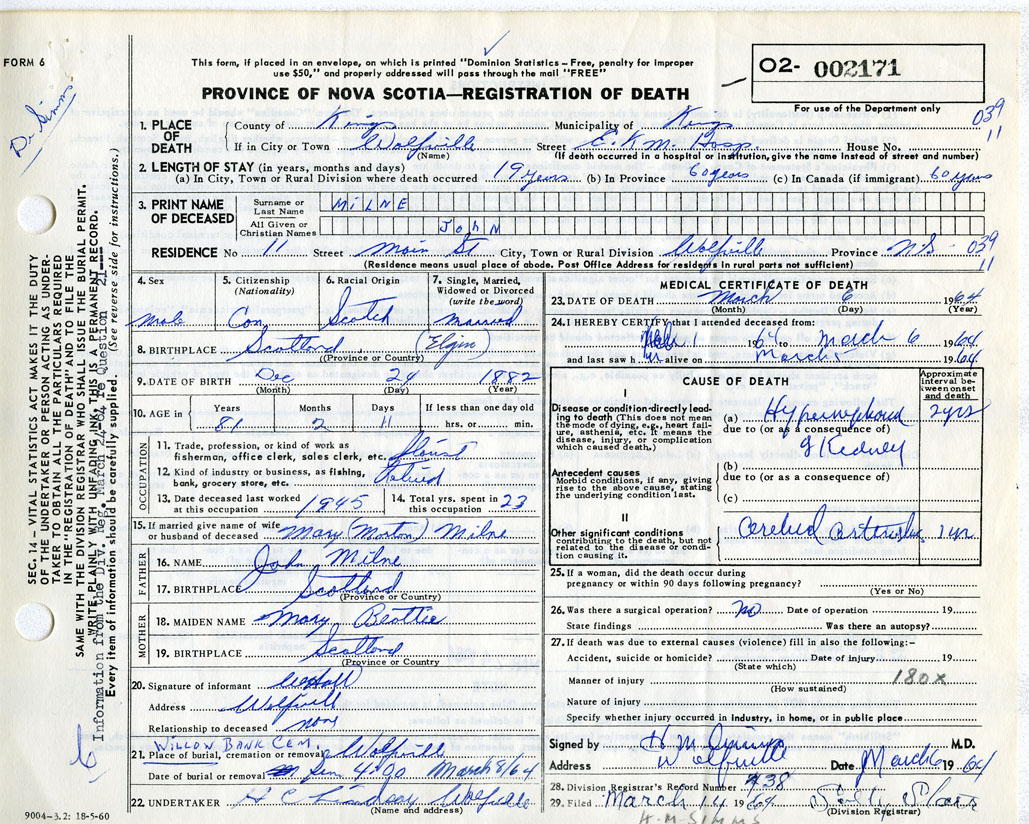 FORM 6
Dr Simms
This form, if placed in an envelope, on which is printed "Dominion Statistics – Free, penalty for improper
use $50," and properly addressed will pass through the mail "FREE"
PROVINCE OF NOVA SCOTIA—REGISTRATION OF DEATH
O2- 002171
For use of the Department only
039
11
1. PLACE OF DEATH
County of Kings Municipality of Kings
If in City or Town Wolfville Street E.K.M. Hosp. House No.
(Name) (If death occurred in a hospital or institution, give the name instead of street and number)
2. LENGTH OF STAY (in years, months and days)
(a) In City, Town or Rural Division where death occurred 19 years (b) In Province 60 years (c) In Canada (if immigrant) 60 years
3. PRINT NAME OF DECEASED
Surname or Last Name MILNE
All Given or Christian Names John
RESIDENCE No 11 Street Main St City, Town or Rural Division Wolfville Province N.S. 039
11
(Residence means usual place of abode. Post Office Address for residents in rural parts not sufficient)
4. Sex
5. Citizenship (Nationality)
6. Racial Origin
7. Single, Married, Widowed or Divorced (write the word)
Male Can Scotch Married
8. BIRTHPLACE Scotland (Elgin)
(Province or Country)
9. DATE OF BIRTH Dec 24 1882
(Month) (Day) (Year)
10. AGE in Years Months Days If less than one day old
81 2 11 hrs. or min.
OCCUPATION
11. Trade, profession, or kind of work as
fisherman, office clerk, sales clerk, etc. florist
12. Kind of industry or business, as fishing,
bank, grocery store, etc. Retired
13. Date deceased last worked
at this occupation 1945
14. Total yrs. spent in
this occupation 23
15. If married give name of wife
or husband of deceased Mary (Morton) Milne
FATHER
16. NAME John Milne
17. BIRTHPLACE Scotland
(Province or Country)
MOTHER
18. MAIDEN NAME Mary Beattie
19. BIRTHPLACE Scotland
(Province or Country
20. Signature of informant
Address Wolfville
Relationship to deceased none
WILLOW BANK CEM.
21. Place of burial, cremation or removal Wolfville
Date of burial or removal 4:00 March 8/64
22. UNDERTAKER H C Lindsay Wolfville
(Name and address)
9004–3.2: 18-5-60
MEDICAL CERTIFICATE OF DEATH
23. DATE OF DEATH March 6 1964
(Month) (Day) (Year)
24. I HEREBY CERTIFY that I attended deceased from:
1 1964 to March 6 1964
and last saw h im alive on March 5 1964
CAUSE OF DEATH
Approximate interval between onset and death
I
Disease or condition directly leading to death (This does not mean the mode of dying, e.g., heart failure, asthenia, etc. It means the disease, injury, or complication which caused death.)
(a) Hypernephroma 2 yrs
due to (or as a consequence of)
of Kidney
Antecedent causes
Morbid conditions, if any, giving rise to the above cause, stating the underlying condition last.
(b)
due to (or as a consequence of)
(c)
II
Other significant conditions
contributing to the death, but not related to the disease or condition causing it.
Cerebral 1 yr
25. If a woman, did the death occur during
pregnancy or within 90 days following pregnancy?
(Yes or No)
26. Was there a surgical operation? no Date of operation 19
State findings Was there an autopsy?
27. If death was due to external causes (violence) fill in also the following:–
Accident, suicide or homicide? Date of injury 19
(State which)
Manner of injury 180x
(How sustained)
Nature of injury
Specify whether injury occurred in industry, in home, or in public place
Signed by M.D.
Address Wolfville Date March 6 1964
28. Division Registrar's Record Number 38
29. Filed March 14 1964
(Division Registrar)
H.M. SIMMS
SEC. 14 – VITAL STATISTICS ACT MAKES IT THE DUTY
OF THE UNDERTAKER OR PERSON ACTING AS UNDER-
TAKER TO OBTAIN ALL THE PARTICULARS REQUIRED
IN THE "REGISTRATION OF DEATH" AND TO FILE THE
SAME WITH THE DIVISION REGISTRAR WHO SHALL ISSUE THE BURIAL PERMIT.
WRITE PLAINLY WITH UNFADING INK, THIS IS A PERMANENT RECORD.
Information from the Div. Reg. March 24-64 re Question 21
Every item of information should be carefully supplied. (See reverse side for instructions.)